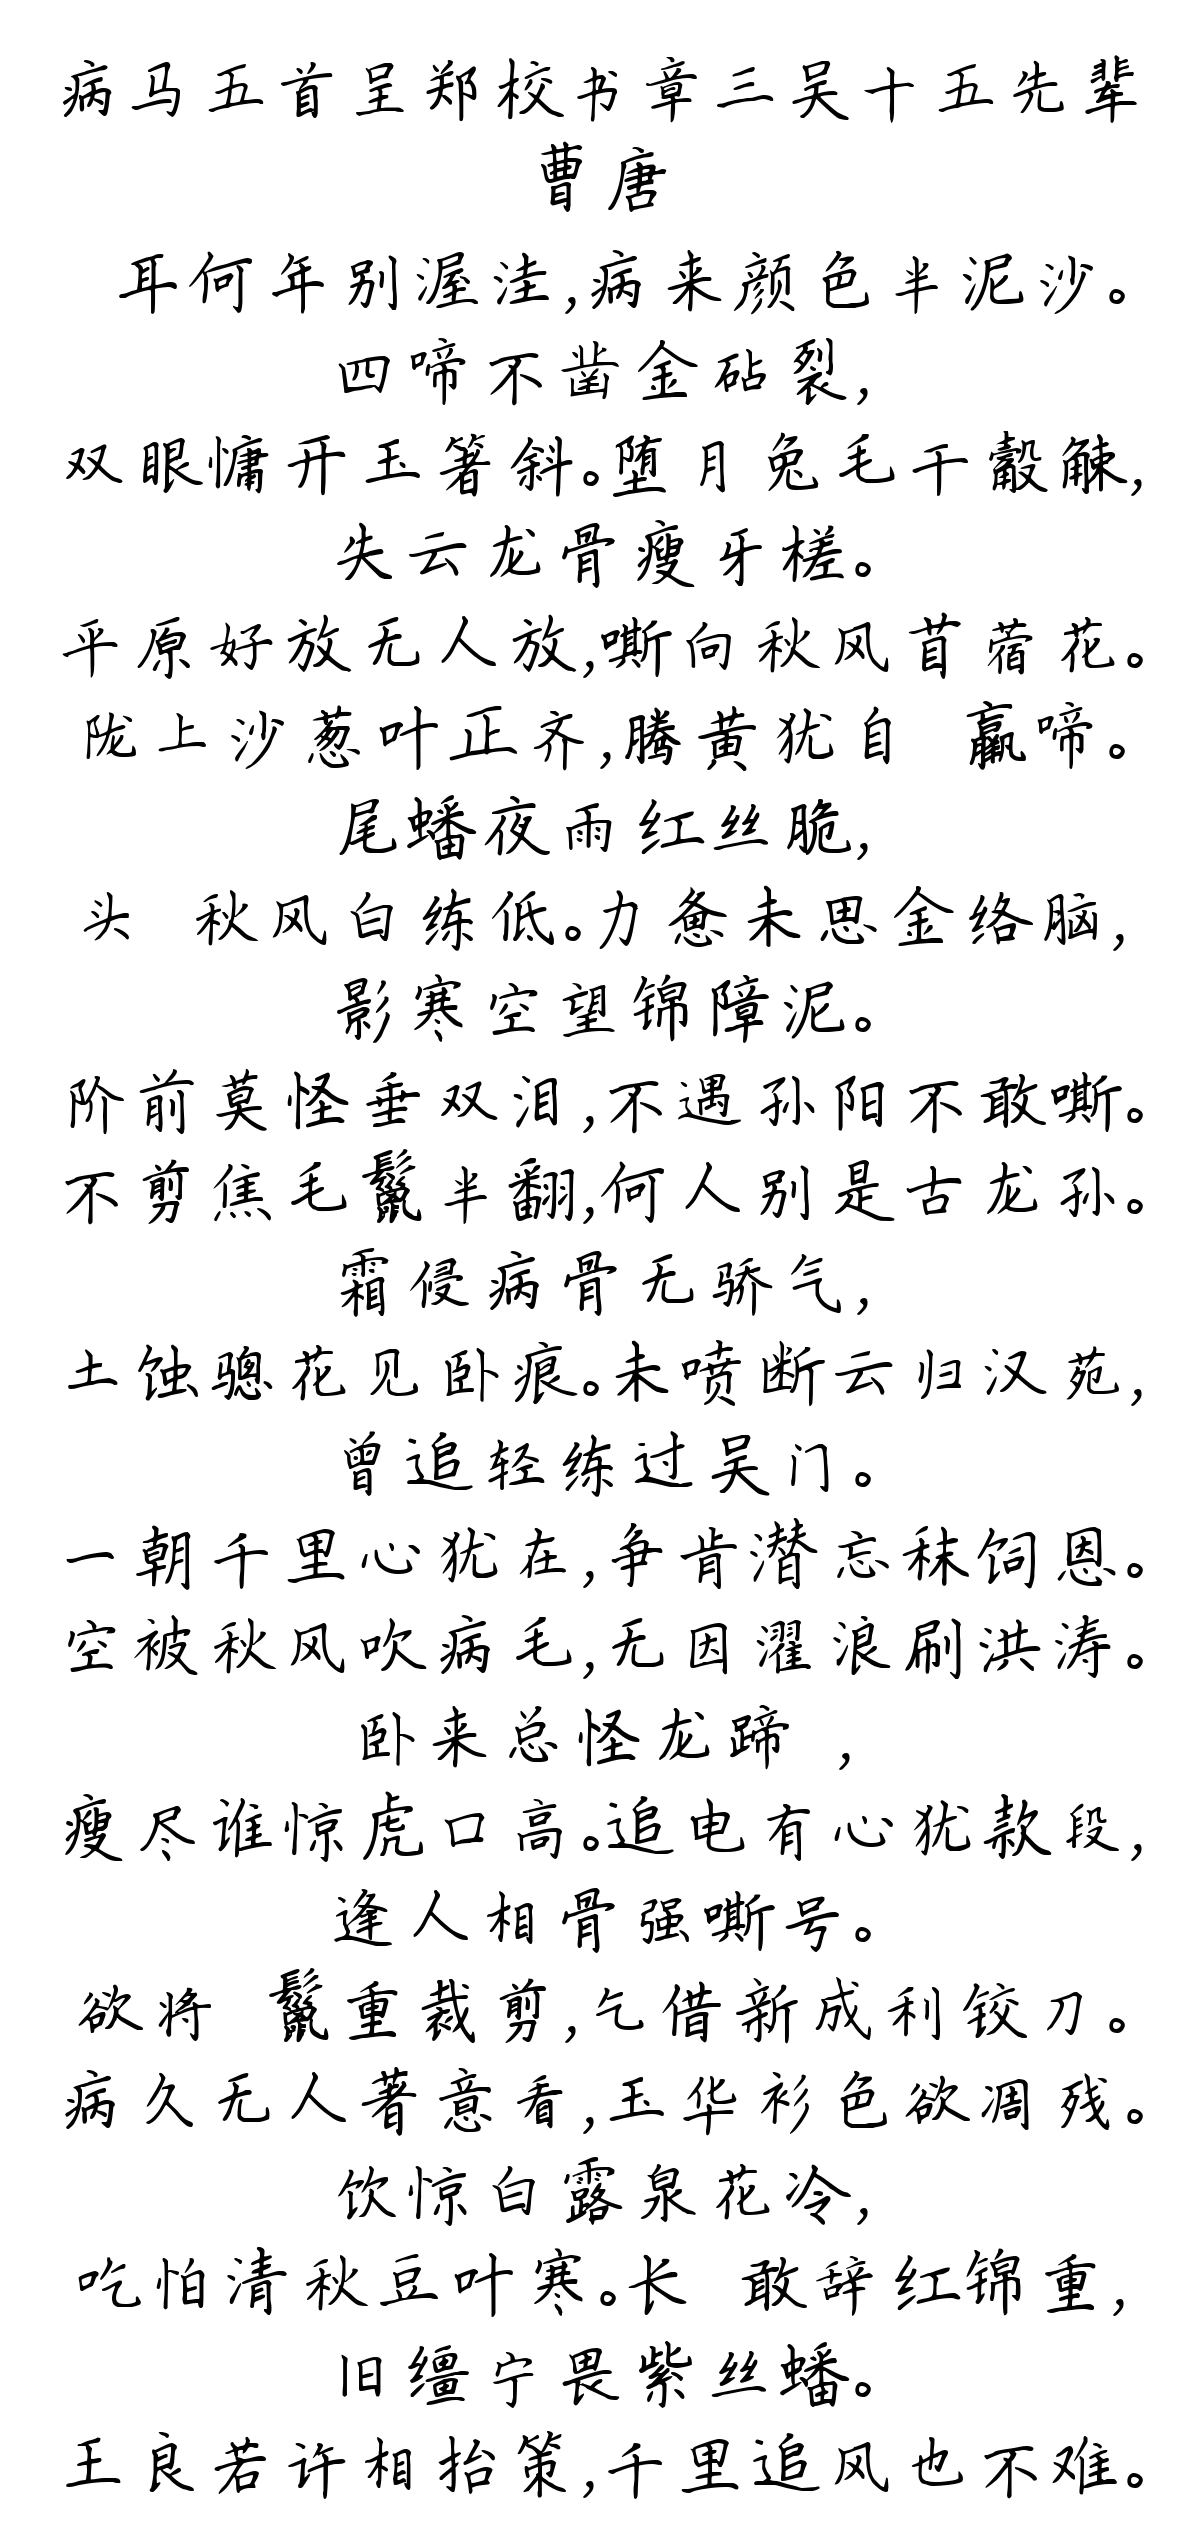 病马五首呈郑校书章三吴十五先辈
曹唐
耳何年别渥洼,病来颜色半泥沙。
四啼不凿金砧裂,
双眼慵开玉箸斜。堕月兔毛干觳觫,
失云龙骨瘦牙槎。
平原好放无人放,嘶向秋风苜蓿花。
陇上沙葱叶正齐,腾黄犹自 羸啼。
尾蟠夜雨红丝脆,
头 秋风白练低。力惫未思金络脑,
影寒空望锦障泥。
阶前莫怪垂双泪,不遇孙阳不敢嘶。
不剪焦毛鬣半翻,何人别是古龙孙。
霜侵病骨无骄气,
土蚀骢花见卧痕。未喷断云归汉苑,
曾追轻练过吴门。
一朝千里心犹在,争肯潜忘秣饲恩。
空被秋风吹病毛,无因濯浪刷洪涛。
卧来总怪龙蹄 ,
瘦尽谁惊虎口高。追电有心犹款段,
逢人相骨强嘶号。
欲将 鬣重裁剪,乞借新成利铰刀。
病久无人著意看,玉华衫色欲凋残。
饮惊白露泉花冷,
吃怕清秋豆叶寒。长 敢辞红锦重,
旧缰宁畏紫丝蟠。
王良若许相抬策,千里追风也不难。